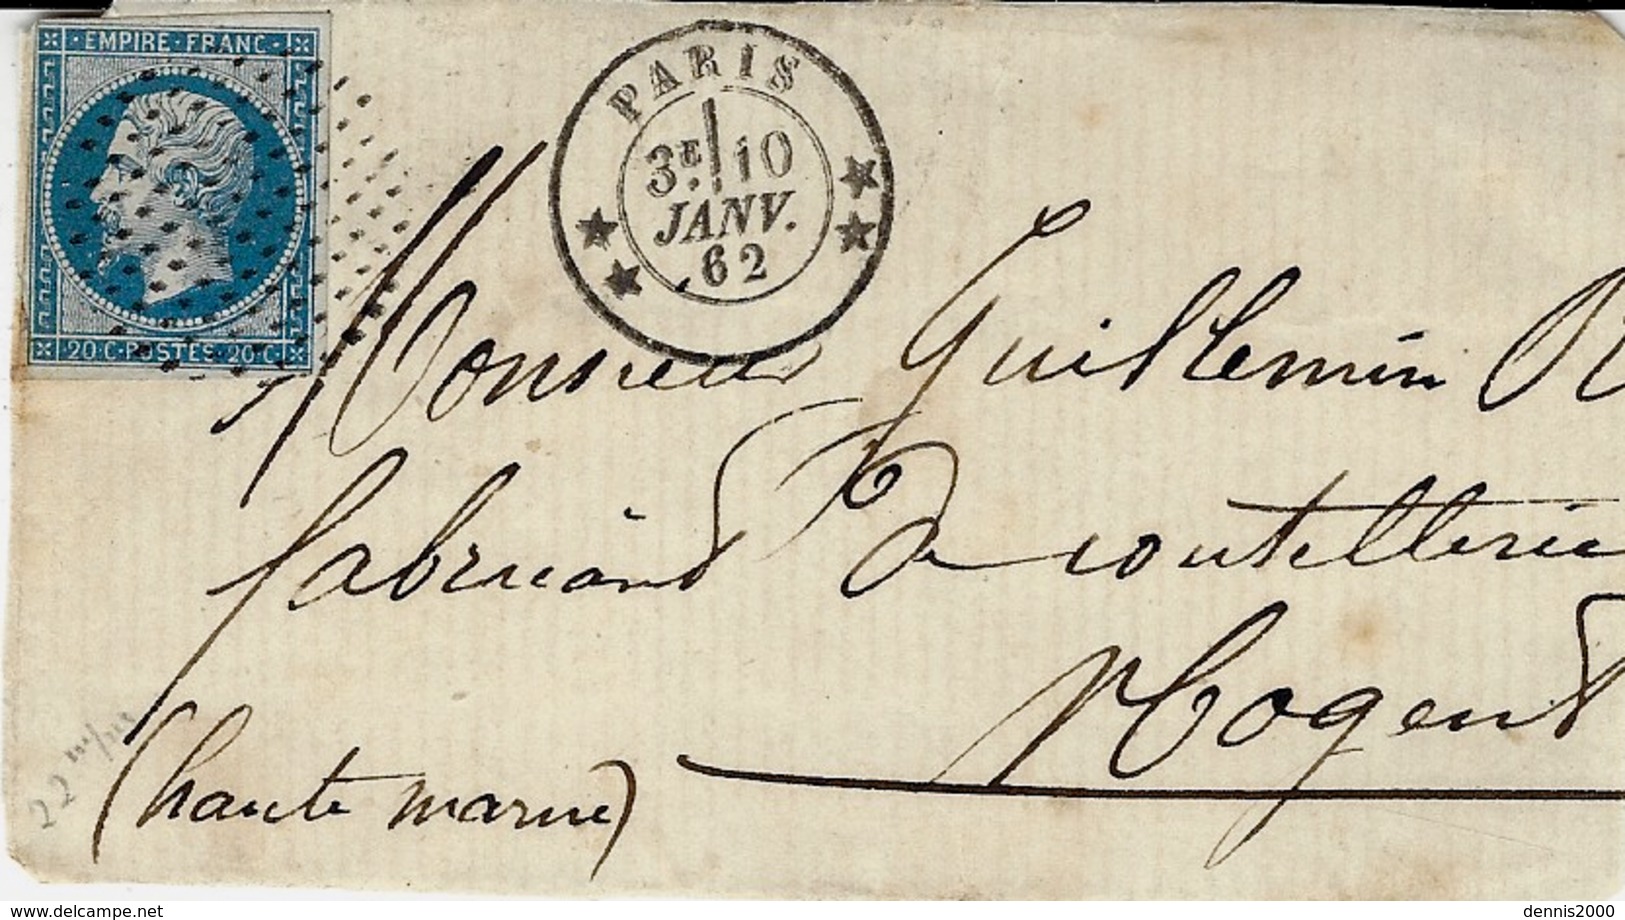 EMPIRE · FRANC ·
20 · C · POSTES · 20 · C ·
PARIS
3E 10
JANV.
62
Monsieur Guillemin
fabricant De coutellerie
Nogent
(haute marne)
22
www.delcampe.net
dennis2000